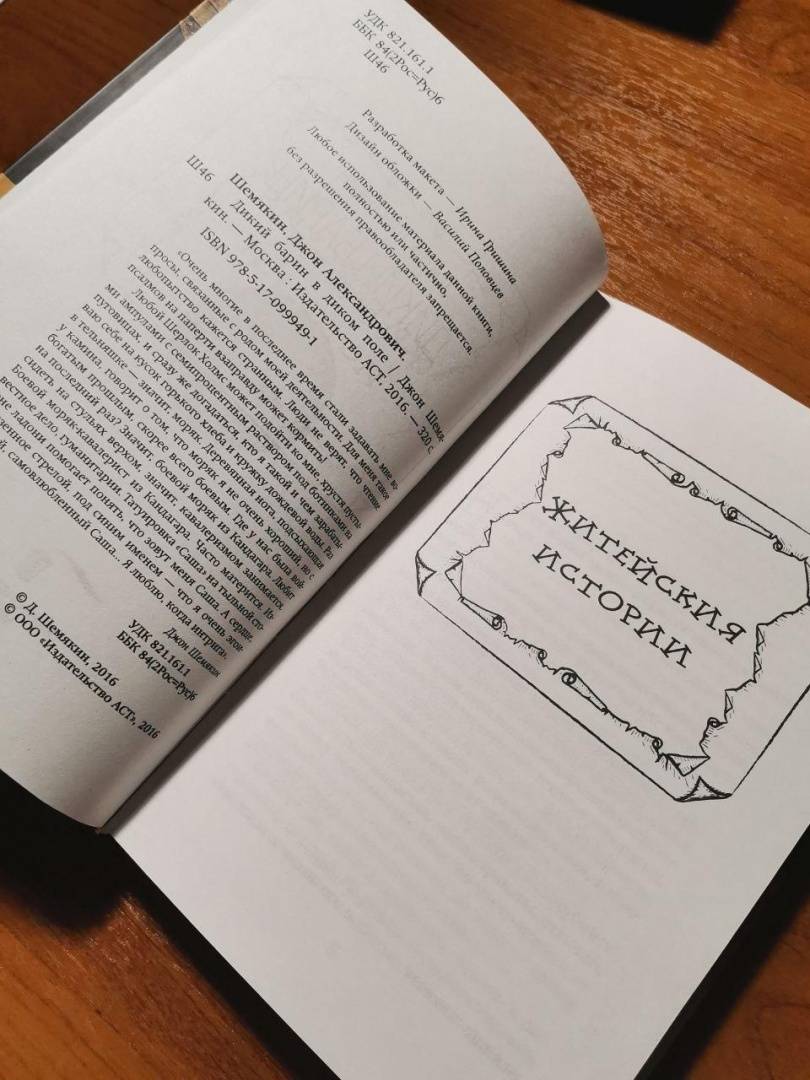 УДК 821.161.1
ББК 84(2Рос=Рус)6
Ш46
Разработка макета — Ирина Гришина
Дизайн обложки — Василий Половцев
Любое использование материала данной книги,
полностью или частично,
без разрешения правообладателя запрещается.
Шемякин, Джон Александрович.
Ш46 Дикий барин в диком поле / Джон Шемя-
кин. — Москва : Издательство АСТ, 2016. — 320 с.
ISBN 978-5-17-099949-1
«Очень многие в последнее время стали задавать мне во-
просы, связанные с родом моей деятельности. Для меня такое
любопытство кажется странным. Люди не верят, что чтение
псалмов на паперти взаправду может кормить!
Любой Шерлок Холмс может подойти ко мне, хрустя пусты-
ми ампулами с семипроцентным раствором под ботинками на
пуговицах, и сразу же догадаться, кто я такой и чем зарабаты-
ваю себе на кусок горького хлеба и кружку дождевой воды. Раз
в тельняшке — значит, моряк. Деревянная нога, подсыхающая
у камина, говорит о том, что моряк я не очень хороший, но с
богатым прошлым, скорее всего боевым. Где у нас была вой-
на последний раз? Значит, боевой моряк из Кандагара. Любит
сидеть на стульях верхом, значит, кавалеризмом занимается.
Боевой моряк-кавалерист из Кандагара. Часто матерится. Из-
вестное дело, гуманитарий. Татуировка «Саша» на тыльной сто-
не ладони помогает понять, что зовут меня Саша. А сердце,
зенное стрелой, под синим именем — что я очень эгои-
й, самовлюбленный Саша... Я люблю, когда интрига».
Джон Шемякин
УДК 821.161.1
ББК 84(2Рос=Рус)6
© Д. Шемякин, 2016
© ООО «Издательство АСТ», 2016
ЖИТЕЙСКИЯ
ИСТОРИИ